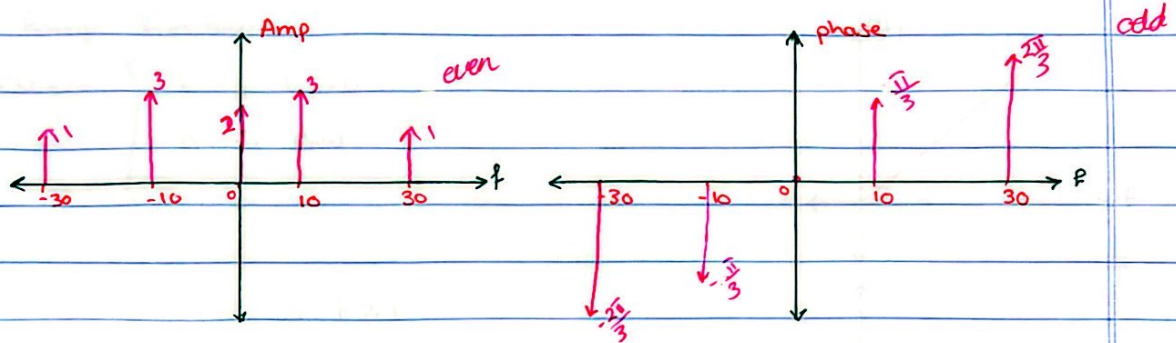 Amp
even
3
3
2
1
1
f
-30
-10
0
10
30
phase
odd
π/3
2π/3
f
-30
-10
0
10
30
-π/3
-2π/3